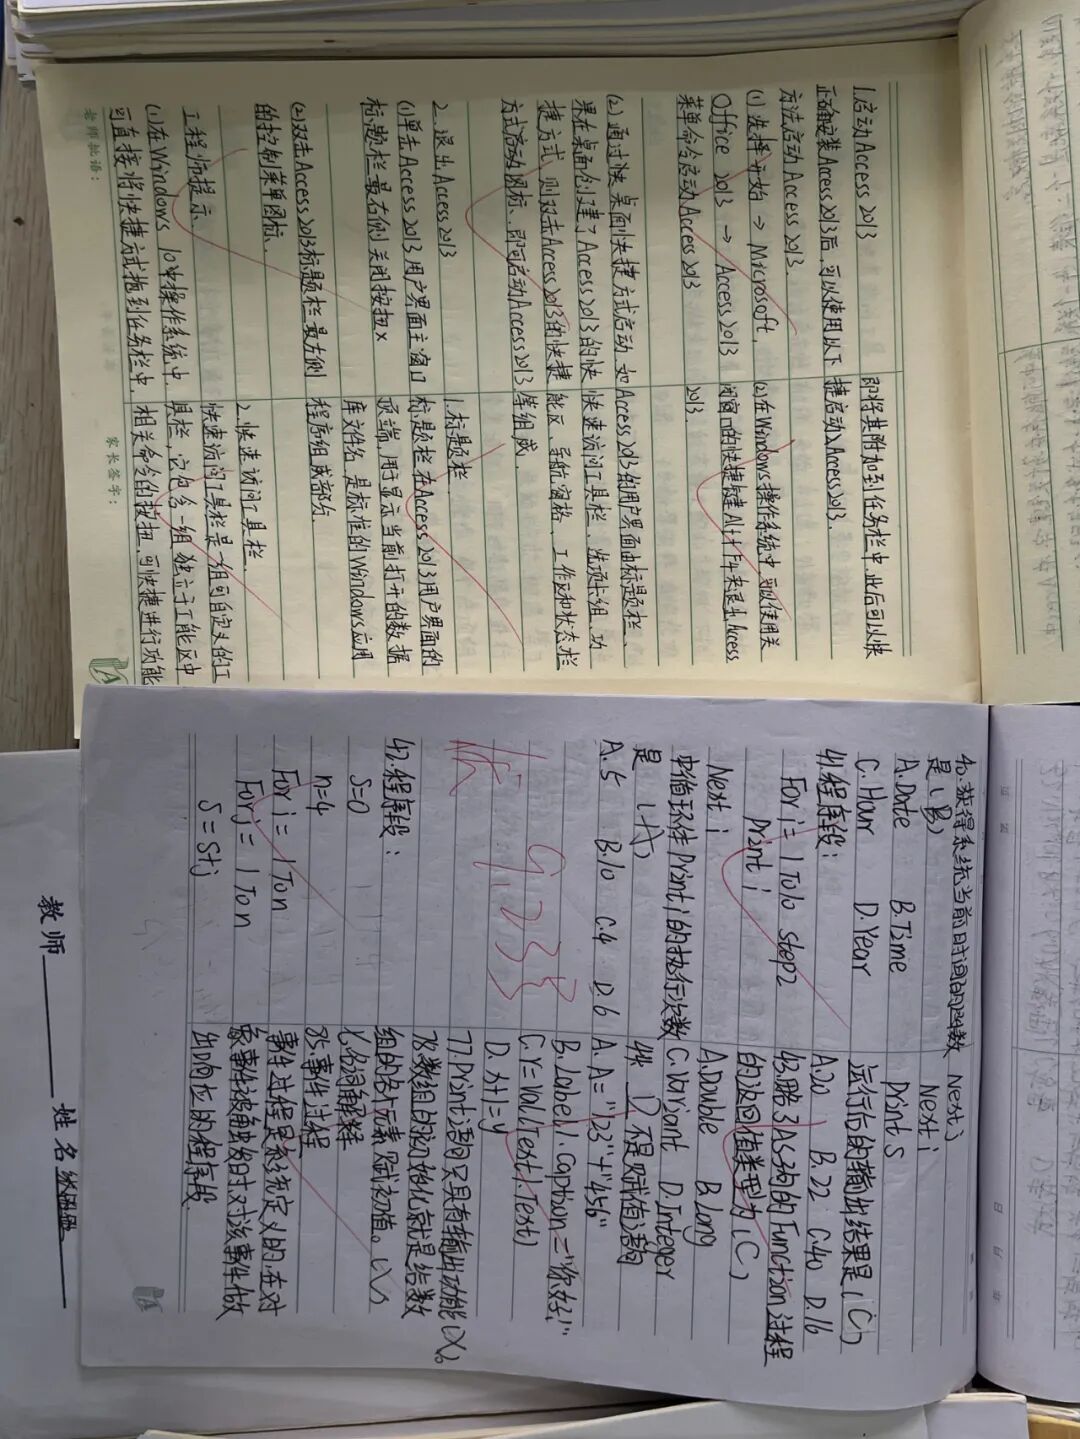 1.启动Access 2013
正确安装Access2013后,可以使用以下
方法启动Access 2013.
(1)选择开始 → Microsoft
Office 2013 → Access 2013
菜单命令启动Access 2013
(2)通过快桌面快捷方式启动.如
果在桌面创建了Access2013的快
捷方式,则双击Access2013的快捷
方式启动图标、即可启动Access2013.
2.退出Access2013
(1)单击Access2013用户界面主窗口
标题栏最右侧关闭按扭x
(2)双击Access2013标题栏最左侧
的控制菜单图标、
工程师提示
(1)在Windows 10中操作系统中,
可直接将快捷方式拖到任务栏中,
老师批语:
即将其附加到任务栏中,此后可以快
捷启动Access2013.
(2)在Windows操作系统中,可以使用关
闭窗口的快捷键Alt+F4来退出Access
2013.
Access2013的用户界面由标题栏、
快速访问工具栏、选项卡组、功
能区、导航窗格、工作区和状态栏
等组成.
1.标题栏
标题栏在Access 2013用户界面的
顶端,用于显示当前打开的数据
库文件名,是标准的Windows应用
程序组成部分.
2.快速访问工具栏.
快速访问工具栏是一组可自定义的工
具栏,它包含一组独立于工能区中
相关命令的按扭,可快捷进行功能
家长签字:
40.获得系统当前时间的函数
是(B)
A.Date B.Time
C.Hour D.Year
41.程序段:
For i=1 To 10 step2
Print i
Next i
中循环体Print i的执行次数
是(A)
A.5 B.10 C.4 D.6
9.23
42.程序段:
S=0
n=4
For i=1 To n
For j=1 To n
S=S+j
Next j
Next i
Print S
运行后的输出结果是(C)
A.20 B.22 C.40 D.16
的返回值类型为(C)
A.Double B.Long
C.Variant D.Integer
44. D 不是赋值语句
A.A="123"+"456"
B.Label1.Caption="你好!"
C.Y=Val(Text1.Text)
D.x+1=y
77.Print语句只具有输出功能(X)。
78.数组的初始化就是给数
组的各个元素赋初值。(X)
八.名词解释
85.事件过程
事件过程是系统定义的,在对
象事件被触发时对该事件做
出响应的程序段.
教师
姓名